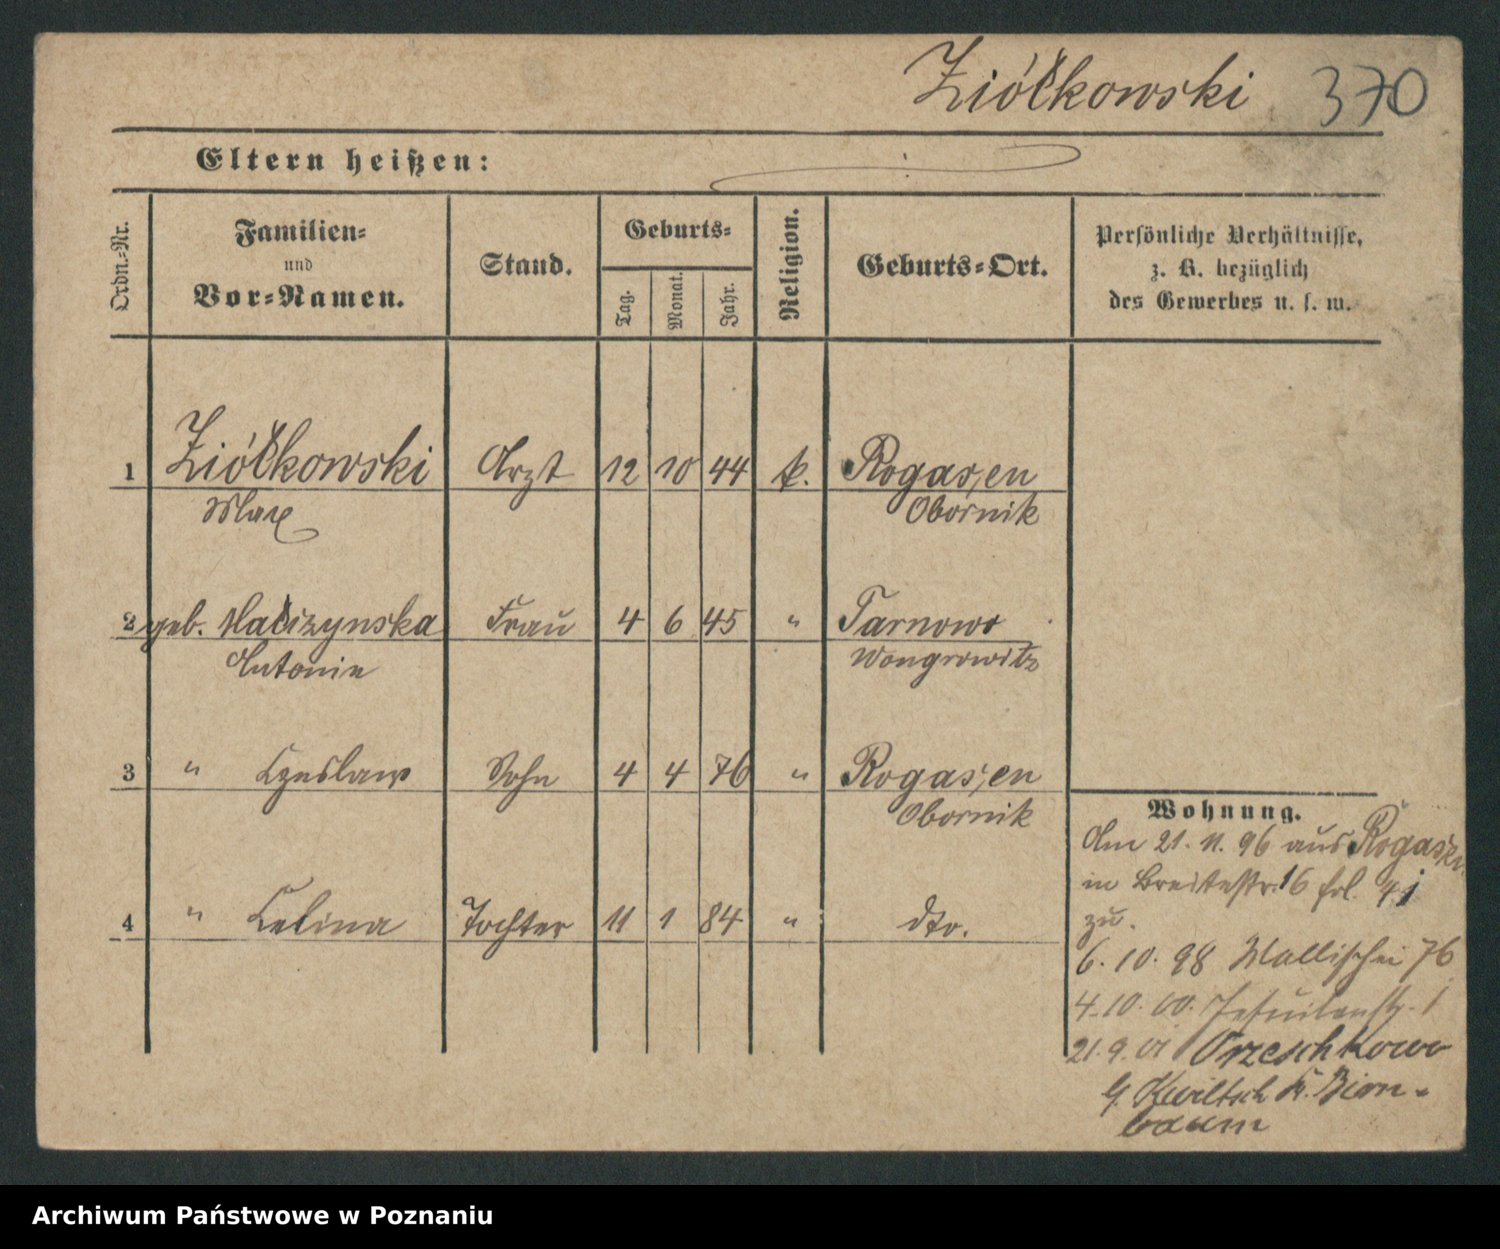 Ziółkowski 370
Eltern heißen:
Ordn.-Nr.
Familien-
und
Vor-Namen.
Stand.
Geburts-
Tag.
Monat.
Jahr.
Religion.
Geburts-Ort.
Persönliche Verhältnisse,
z. B. bezüglich
des Gewerbes u. s. w.
1 Ziółkowski Arzt 12 10 44 k. Rogasen
Max Obornik
2 geb. Frau 4 6 45 " Tarnowo
Antonie Wongrowitz
3 " Czeslaw Sohn 4 4 76 " Rogasen
Obornik
4 " Celina Tochter 11 1 84 " dto.
Wohnung.
Am 21. 11. 96 aus Rogasen
in Breitestr. 16
zu.
6. 10. 98 Wallischei 76
4. 10. 00. Jesuitenstr. 1
21. 9. 01 Orzeschkowo
b. Kwiltsch K. Birn-
baum
Archiwum Państwowe w Poznaniu